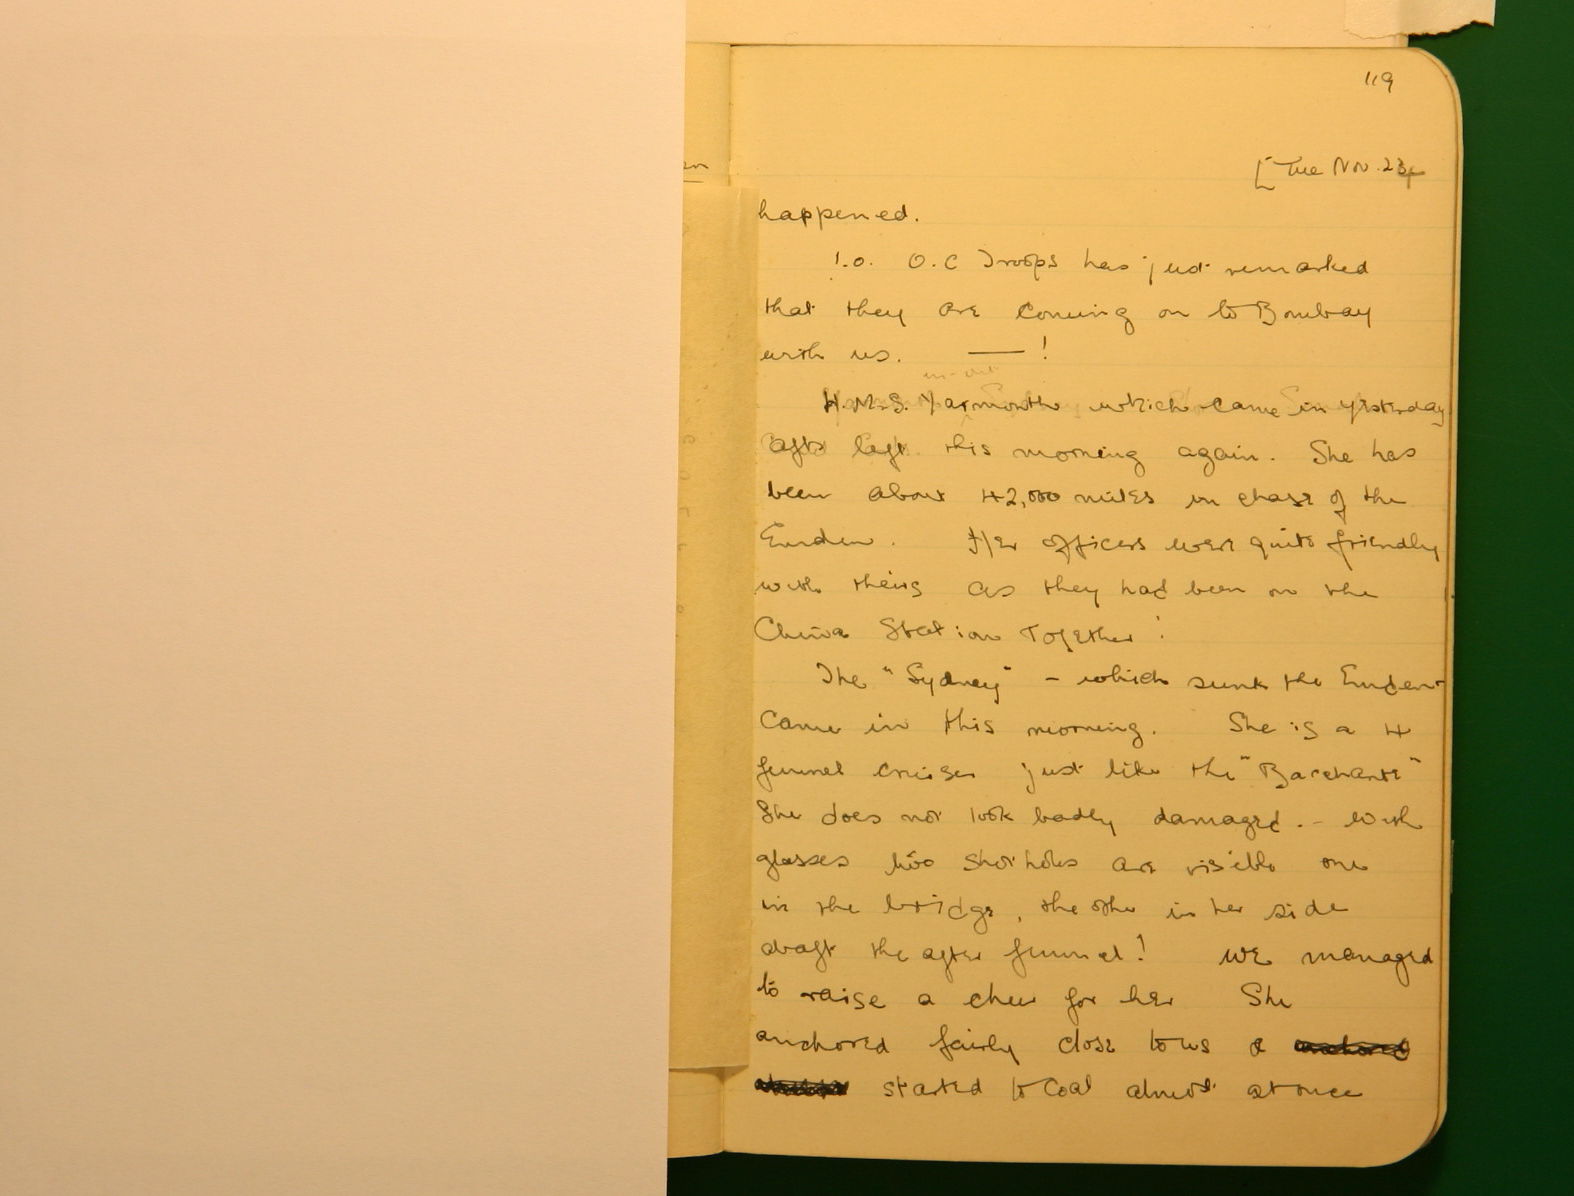 119
[Tue Nov. 24
happened.
1.0. O.C Troops has just remarked
that they are coming on to Bombay
with us. — !
H.M.S. Yarmouth which came in yesterday
left this morning again. She has
been about 42,000 miles in chase of the
Emden. Her officers were quite friendly
with theirs as they had been on the
China Station Together!
The "Sydney" - which sunk the Emden -
came in this morning. She is a 4
funnel cruiser just like the "Bacchante"
She does not look badly damaged. - With
glasses two shot holes are visible one
in the bridge, the other in her side
abaft the after funnel! We managed
to raise a cheer for her She
anchored fairly close to us &
started to coal almost at once